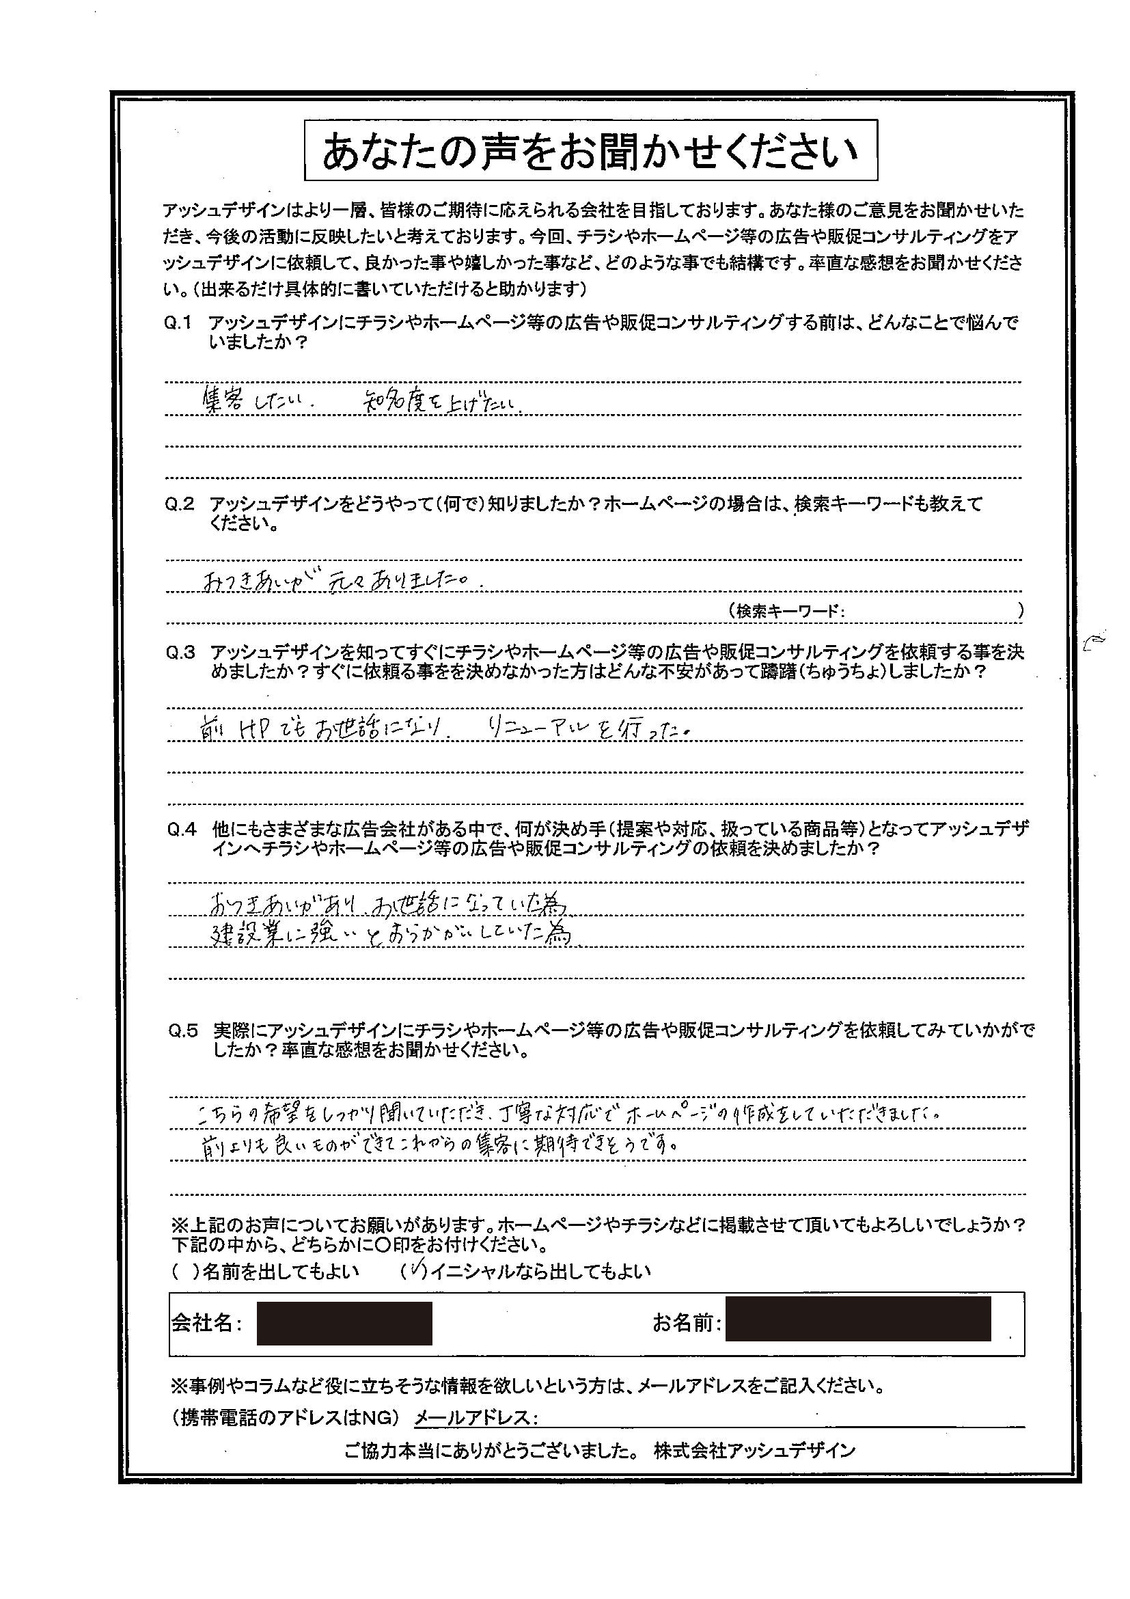 あなたの声をお聞かせください
アッシュデザインはより一層、皆様のご期待に応えられる会社を目指しております。あなた様のご意見をお聞かせいた
だき、今後の活動に反映したいと考えております。今回、チラシやホームページ等の広告や販促コンサルティングをア
ッシュデザインに依頼して、良かった事や嬉しかった事など、どのような事でも結構です。率直な感想をお聞かせくださ
い。（出来るだけ具体的に書いていただけると助かります）
Q.1 アッシュデザインにチラシやホームページ等の広告や販促コンサルティングする前は、どんなことで悩んで
いましたか？
集客したい. 知名度を上げたい.
Q.2 アッシュデザインをどうやって（何で）知りましたか？ホームページの場合は、検索キーワードも教えて
ください。
おつきあいが元々ありました。
（検索キーワード： ）
Q.3 アッシュデザインを知ってすぐにチラシやホームページ等の広告や販促コンサルティングを依頼する事を決
めましたか？すぐに依頼る事をを決めなかった方はどんな不安があって躊躇（ちゅうちょ）しましたか？
前HPでもお世話になり. リニューアルを行った。
Q.4 他にもさまざまな広告会社がある中で、何が決め手（提案や対応、扱っている商品等）となってアッシュデザ
インへチラシやホームページ等の広告や販促コンサルティングの依頼を決めましたか？
おつきあいがあり、お世話になっていた為
建設業に強いとおうかがいしていた為
Q.5 実際にアッシュデザインにチラシやホームページ等の広告や販促コンサルティングを依頼してみていかがで
したか？率直な感想をお聞かせください。
こちらの希望をしっかり聞いていただき、丁寧な対応でホームページの作成をしていただきました。
前よりも良いものができてこれからの集客に期待できそうです。
※上記のお声についてお願いがあります。ホームページやチラシなどに掲載させて頂いてもよろしいでしょうか？
下記の中から、どちらかに〇印をお付けください。
（ ）名前を出してもよい （✓）イニシャルなら出してもよい
会社名： お名前：
※事例やコラムなど役に立ちそうな情報を欲しいという方は、メールアドレスをご記入ください。
（携帯電話のアドレスはNG） メールアドレス：
ご協力本当にありがとうございました。 株式会社アッシュデザイン